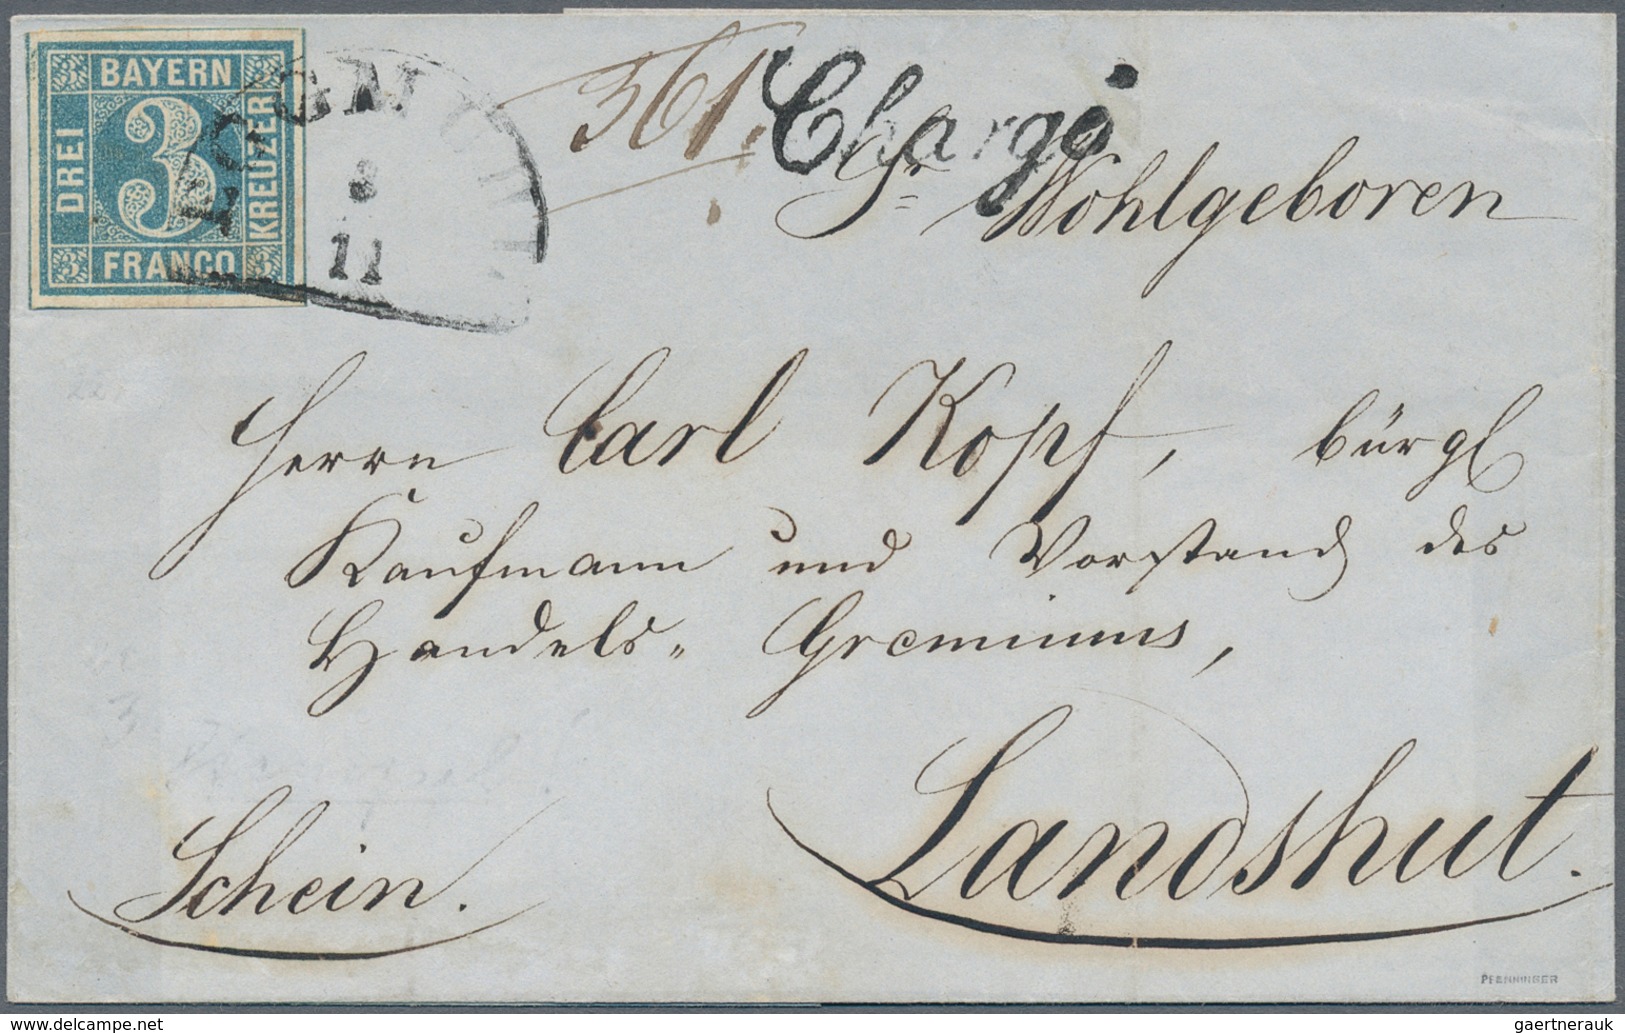 BAYERN
DREI
3
KREUZER
FRANCO
3
3
3
3
8
11
361.
Chargé
Sr Wohlgeboren
Herrn Carl Kopf, bürgl
Kaufmann und Vorstand des
Handels= Gremiums,
Landshut.
Schein.
PFENNINGER
gaertnerauk